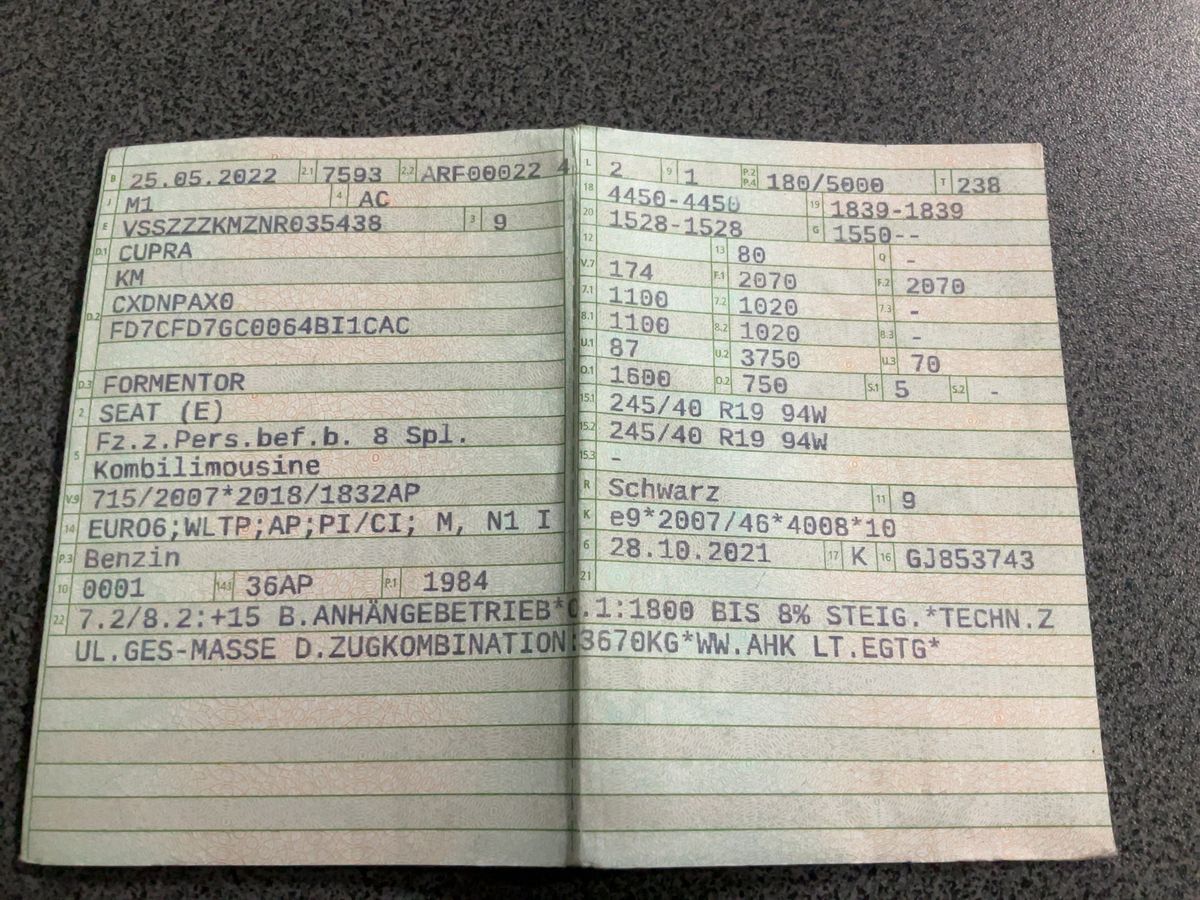 B 25.05.2022 2.1 7593 2.2 ARF00022 4
J M1 4 AC
E VSSZZZKMZNR035438 3 9
D.1 CUPRA
KM
D.2 CXDNPAX0
FD7CFD7GC0064BI1CAC
D.3 FORMENTOR
2 SEAT (E)
5 Fz.z.Pers.bef.b. 8 Spl.
Kombilimousine
V.9 715/2007*2018/1832AP
14 EURO6;WLTP;AP;PI/CI; M, N1 I
P.3 Benzin
10 0001 14.1 36AP P.1 1984
L 2 9 1 P.2 P.4 180/5000 T 238
18 4450-4450 19 1839-1839
20 1528-1528 G 1550--
12 13 80 Q -
V.7 174 F.1 2070 F.2 2070
7.1 1100 7.2 1020 7.3 -
8.1 1100 8.2 1020 8.3 -
U.1 87 U.2 3750 U.3 70
O.1 1600 O.2 750 S.1 5 S.2 -
15.1 245/40 R19 94W
15.2 245/40 R19 94W
15.3 -
R Schwarz 11 9
K e9*2007/46*4008*10
6 28.10.2021 17 K 16 GJ853743
21
22 7.2/8.2:+15 B.ANHÄNGEBETRIEB*O.1:1800 BIS 8% STEIG.*TECHN.Z
UL.GES-MASSE D.ZUGKOMBINATION:3670KG*WW.AHK LT.EGTG*